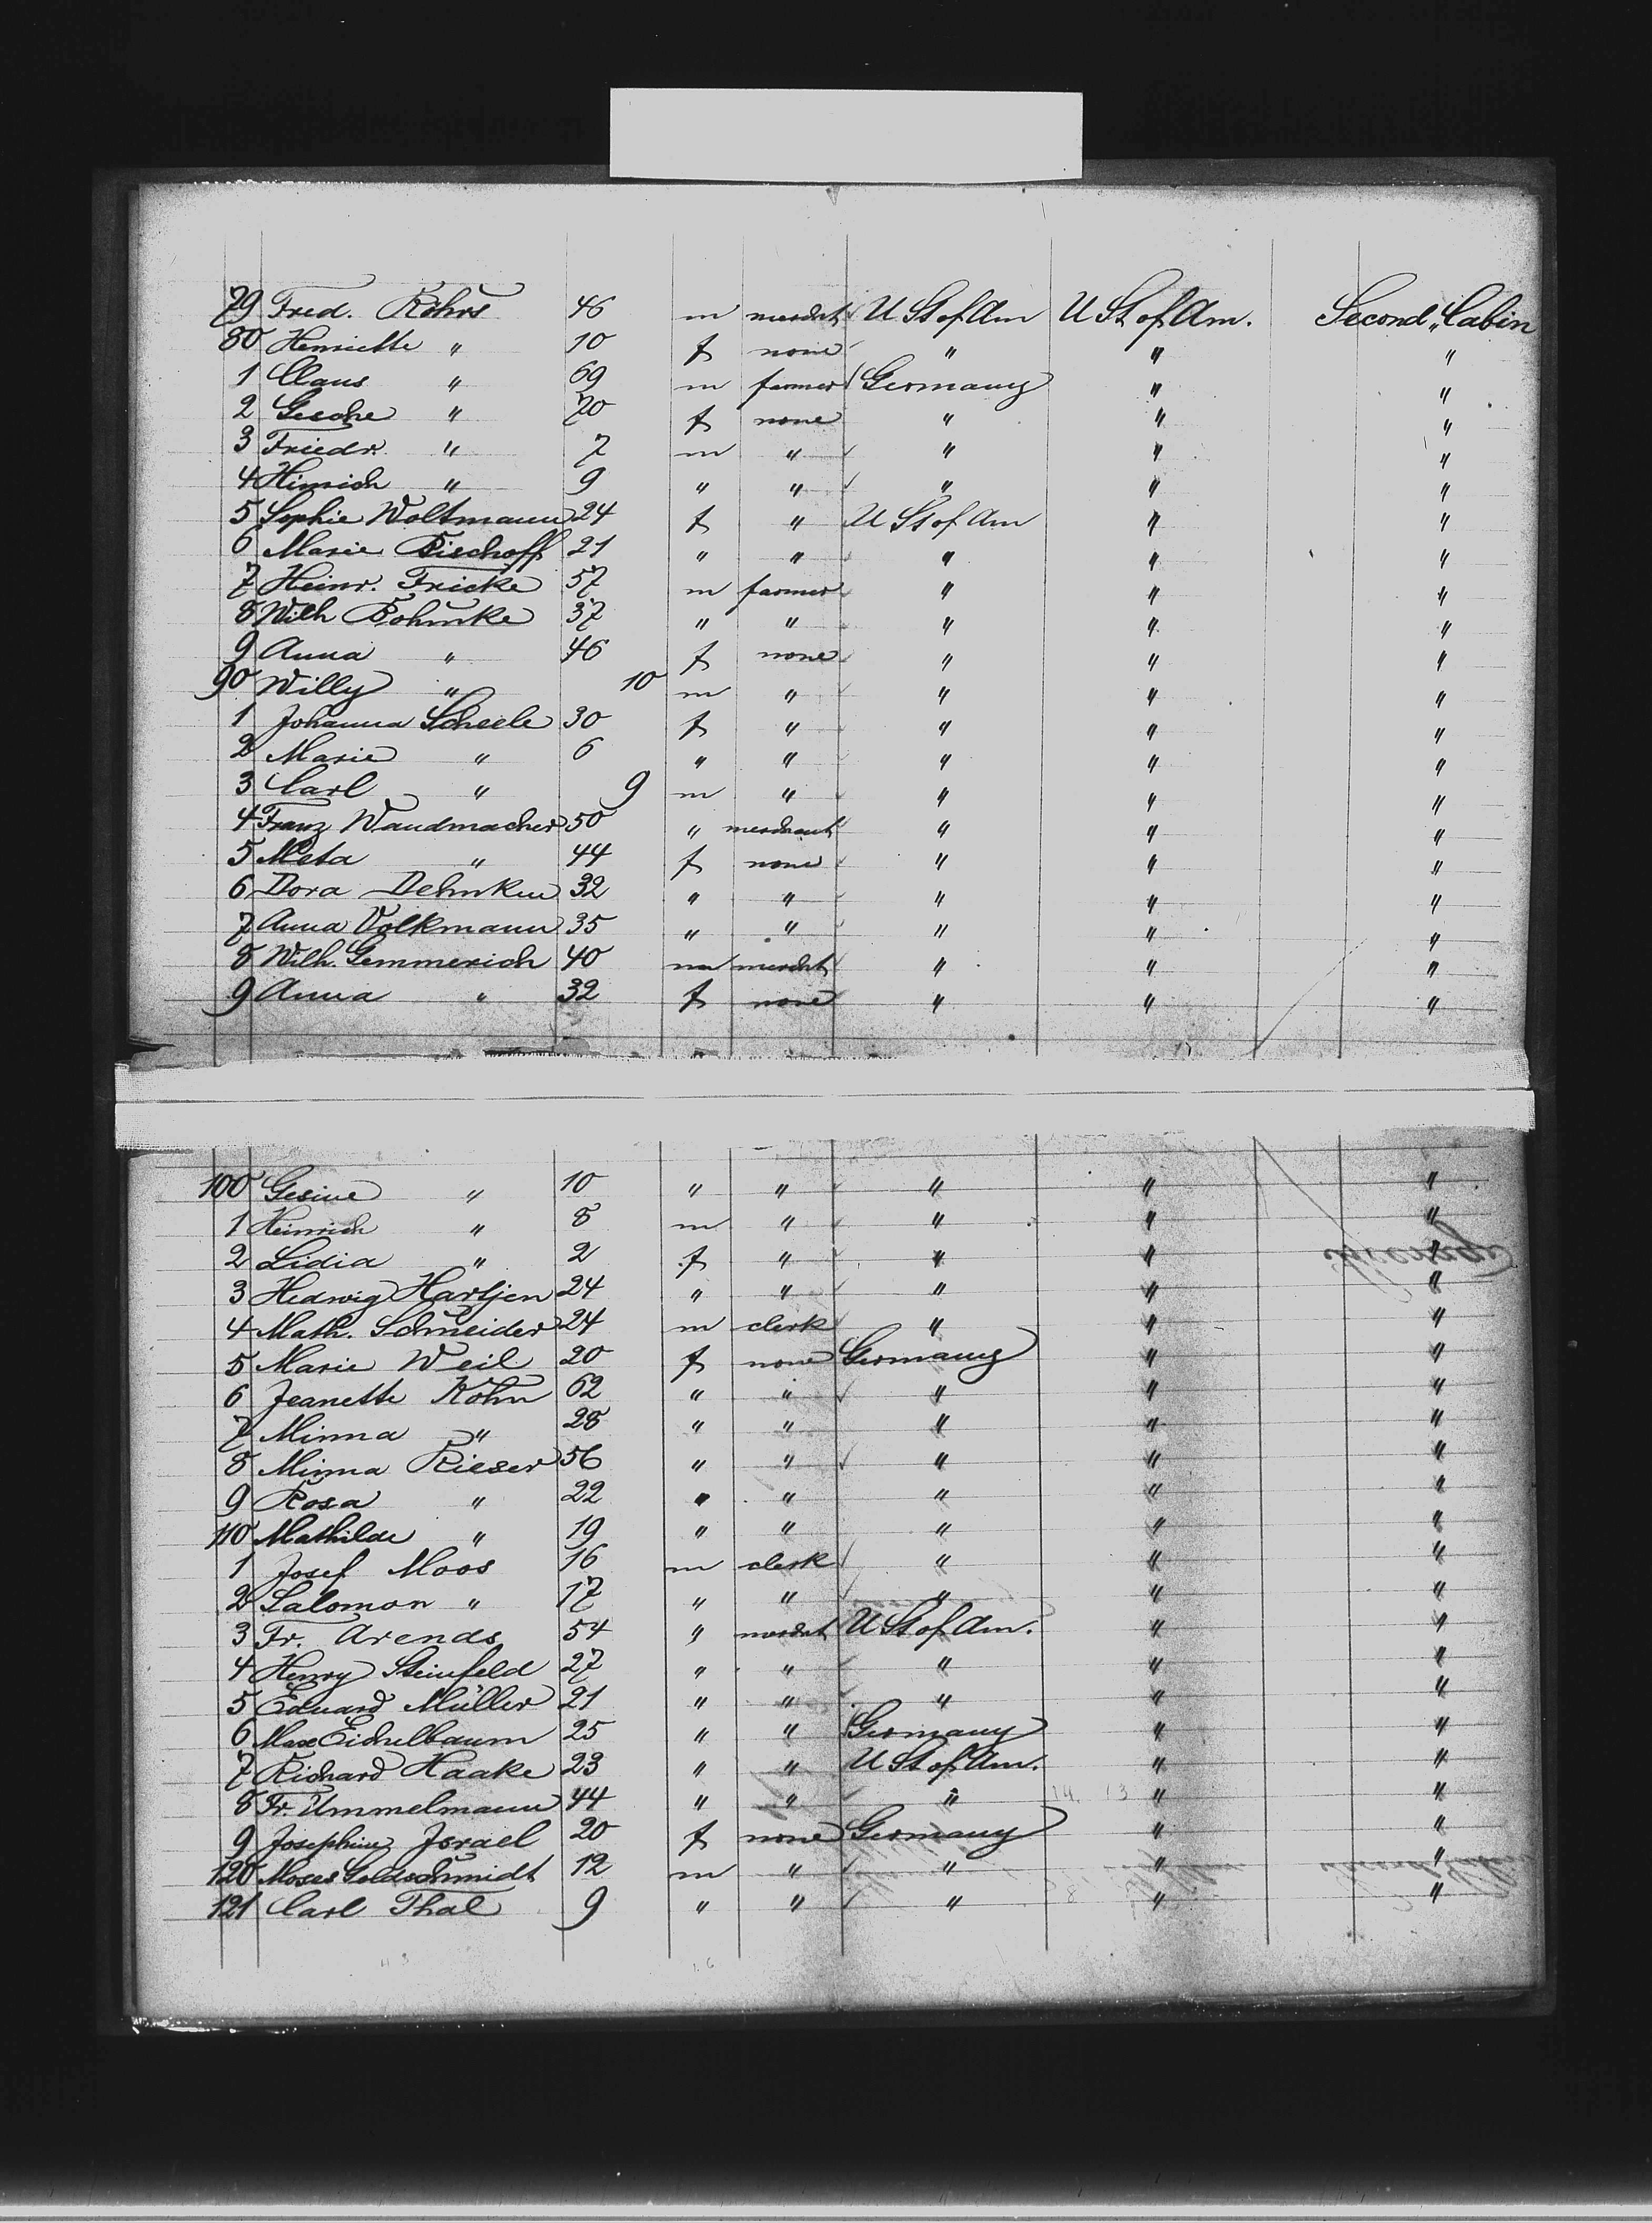 79 Fred. Röhrs 46 m mercht U St of Am U St of Am. Second Cabin
80 Henriette " 10 f none " " "
1 Claus " 69 m farmer Germany " "
2 Gesche " 70 f none " " "
3 Friedr. " 7 m " " " "
4 Hinrich " 9 " " " " "
5 Sophie Woltmann 24 f " U St of Am " "
6 Marie Bischoff 21 " " " " "
7 Heinr. Fricke 57 m farmer " " "
8 Wilh Bohmke 37 " " " " "
9 Anna " 46 f none " " "
90 Willy " 10 m " " " "
1 Johanna Scheele 30 f " " " "
2 Marie " 6 " " " " "
3 Carl " 9 m " " " "
4 Franz Wandmacher 50 " merchant " " "
5 Meta " 44 f none " " "
6 Dora Dehnken 32 " " " " "
7 Anna Volkmann 35 " " " " "
8 Wilh. Gemmerich 40 m mercht " " "
9 Anna " 32 f none " " "
100 Gesine " 10 " " " " "
1 Heinrich " 8 m " " " "
2 Lidia " 2 f " " " "
3 Hedwig Hartjen 24 " " " " "
4 Math. Schneider 24 m clerk " " "
5 Marie Weil 20 f none Germany " "
6 Jeanette Kohn 62 " " " " "
7 Minna " 28 " " " " "
8 Minna Rieser 56 " " " " "
9 Rosa " 22 " " " " "
110 Mathilde " 19 " " " " "
1 Josef Moos 16 m clerk " " "
2 Salomon " 17 " " " " "
3 Fr. Arends 54 " mercht U St of Am. " "
4 Henry Steinfeld 27 " " " " "
5 Eduard Müller 21 " " " " "
6 Max Eichelbaum 25 " " Germany " "
7 Richard Haake 23 " " U St of Am. " "
8 Fr. Ummelmann 44 " " " " "
9 Josephine Israel 20 f none Germany " "
120 Moses Goldschmidt 12 m " " " "
121 Carl Thal 9 " " " " "